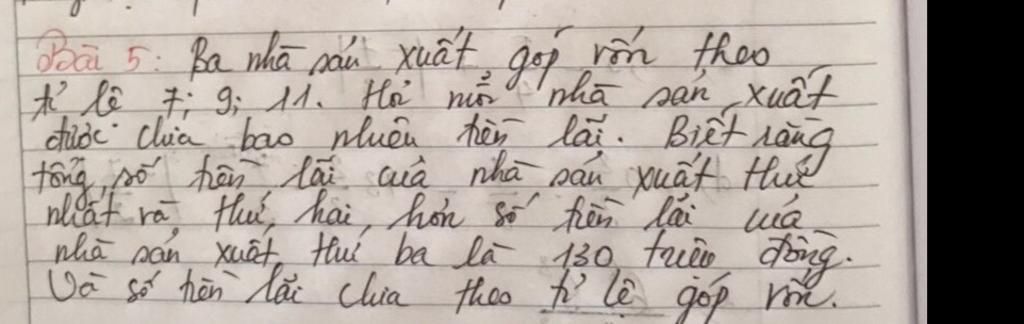 Bài 5: Ba nhà sản xuất góp vốn theo
tỉ lệ 7; 9; 11. Hỏi mỗi nhà sản xuất
được chia bao nhiêu tiền lãi. Biết rằng
tổng số tiền lãi của nhà sản xuất thứ
nhất và thứ hai hơn số tiền lãi của
nhà sản xuất thứ ba là 130 triệu đồng.
Và số tiền lãi chia theo tỉ lệ góp vốn.